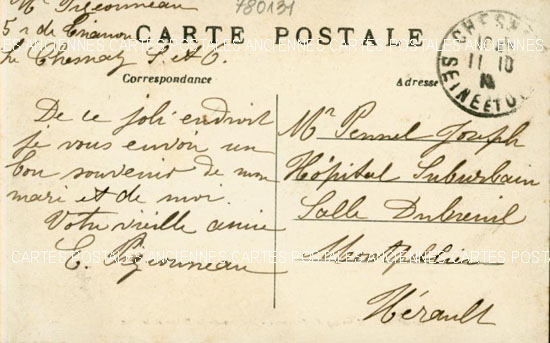 780131
Mr Pigeonneau
5 r de Trianon
Le Chesnay S. et O.
CARTE POSTALE
Correspondance
Adresse
CHESNAY
11 10
SEINE ET O
De ce joli endroit
je vous envoie un
bon souvenir de mon
mari et de moi.
Votre vieille amie
E. Pigeonneau
Mr Pennel Joseph
Hôpital Suburbain
Salle Dubreuil
Montpellier
Hérault
CARTES POSTALES ANCIENNES CARTES POSTALES ANCIENNES CARTES POSTALES ANCIENNES
CARTES POSTALES ANCIENNES CARTES POSTALES ANCIENNES CARTES POSTALES ANCIENNES